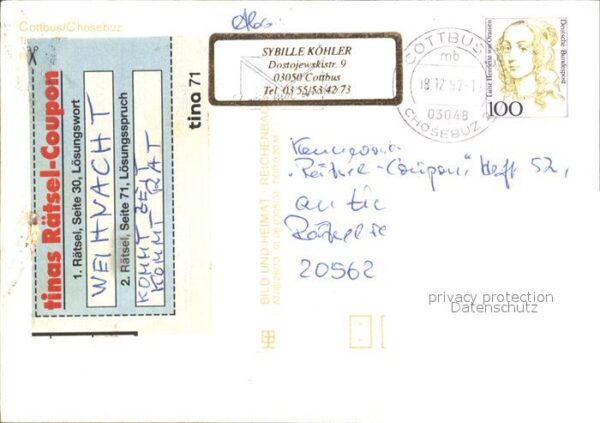 Cottbus/Chosebuz
SYBILLE KÖHLER
Dostojewskistr. 9
03050 Cottbus
Tel. 03 55/53 42 73
COTTBUS
mb
18.12.97
03048
CHOSEBUZ
Deutsche Bundespost
Luise Henriette von Oranien
100
tinas Rätsel-Coupon
1. Rätsel, Seite 30, Lösungswort
WEIHNACHT
2. Rätsel, Seite 71, Lösungsspruch
KOMMT ZEIT
KOMMT RAT
tina 71
BILD UND HEIMAT REICHENBACH
Kennwort:
"Rätsel-Coupon" Heft 52,
an tina
Rätsel
20562
privacy protection
Datenschutz